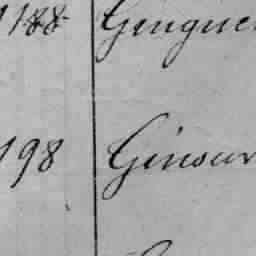 1188 Genguer
198 Ginour